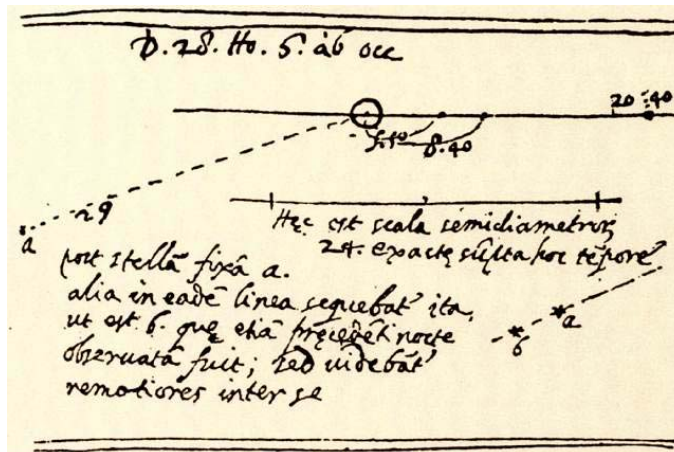 D. 28. Ho. 6. ab occ
20 : 40
5.50
8.40
29
a
Hęc est scala semidiametroꝝ
24. exactę sūpta hoc tēpore
post stellā fixā a.
alia in eadē linea sequebat' ita,
ut est b. quę etiā pręcedēti nocte
observata fuit; sed videbāt'
remotiores inter se
b a